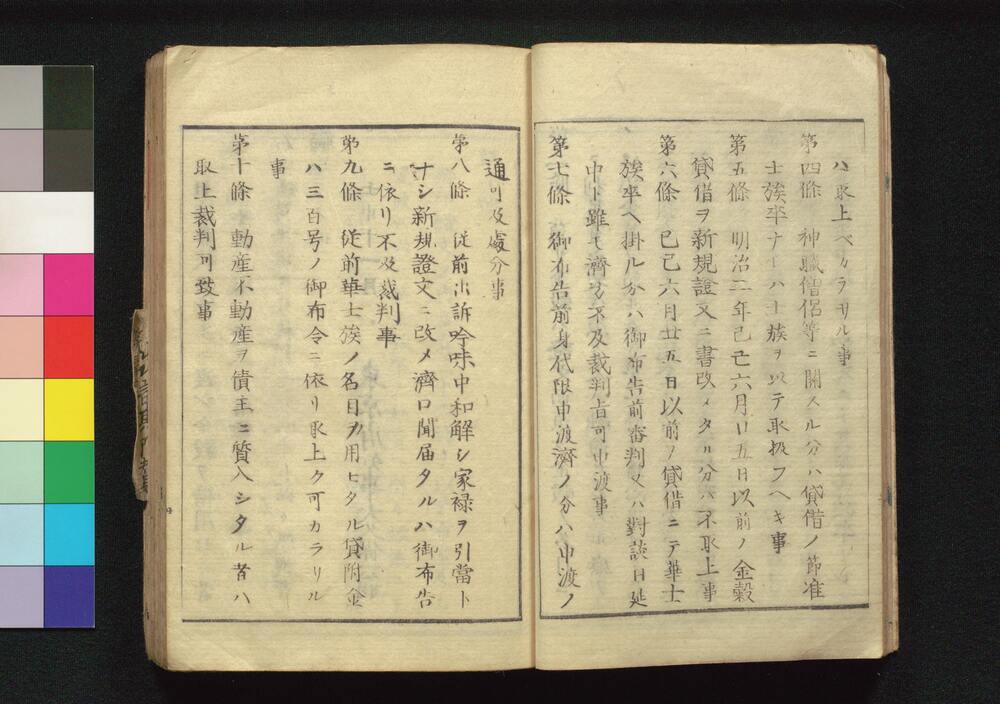 ハ取上ベカラサル事
第四條 神職僧侶等ニ関スル分ハ貸借ノ節准
士族卒ナレハ士族ヲ以テ取扱フヘキ事
第五條 明治二年己巳六月廿五日以前ノ金穀
貸借ヲ新規證文ニ書改メタル分ハ不取上事
第六條 己巳六月廿五日以前ノ貸借ニテ華士
族卒ヘ掛ル分ハ御布告前審判又ハ對談日延
中ト雖モ濟方不及裁判旨可申渡事
第七條 御布告前身代限申渡濟ノ分ハ申渡ノ
通可及處分事
第八條 従前出訴吟味中和解シ家禄ヲ引當ト
ナシ新規證文ニ改メ濟口聞届タルハ御布告
ニ依リ不及裁判事
第九條 従前華士族ノ名目ヲ用ヒタル貸附金
ハ三百号ノ御布令ニ依リ取上ク可カラサル
事
第十條 動産不動産ヲ債主ニ質入シタル者ハ
取上裁判可致事